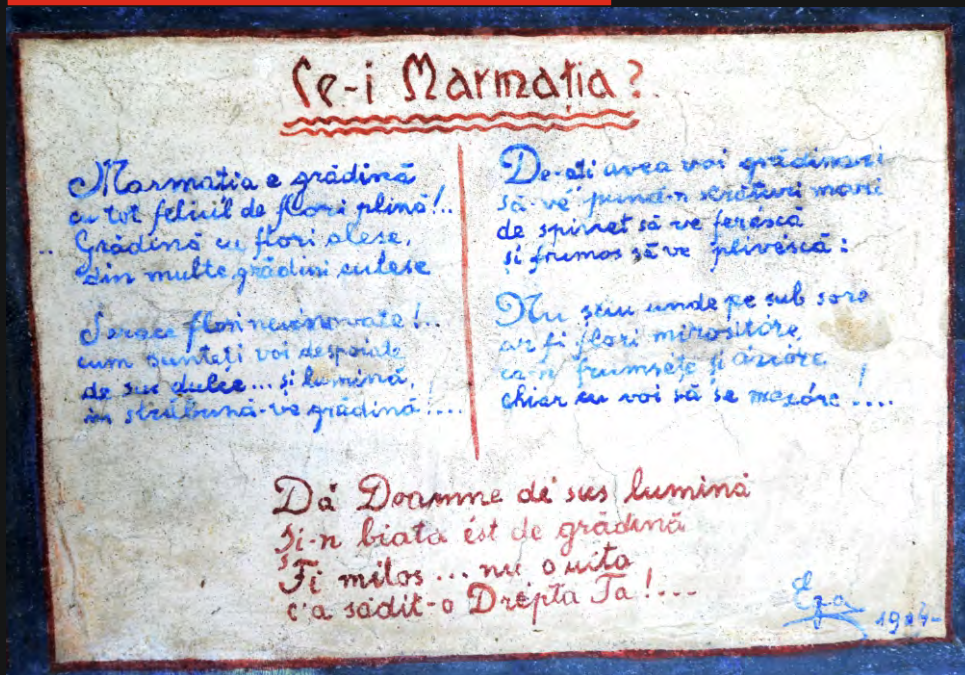 Ce-i Marmația?
Marmatia e grădină
cu tot feliul de flori plină!..
Grădină cu flori alese,
din multe grădini culese
Sarace flori nevinovate!..
cum sunteți voi despoiate
de sus dulce... și lumină,
în străbună-ve grădină!....
De-ați avea voi grădinari
să ve pună-n straturi mari
de spinet să ve ferescă
și frumos să ve plivescă:
Nu știu unde pe sub sore
ar fi flori mirositóre,
ca-n frumsețe și
chiar cu voi să se mezóre....!
Dă Doamne de sus lumină
Și-n biata ést de grădină
Fi milos... nu o uita
c'a sădit-o Drépta Ta!...
Ega